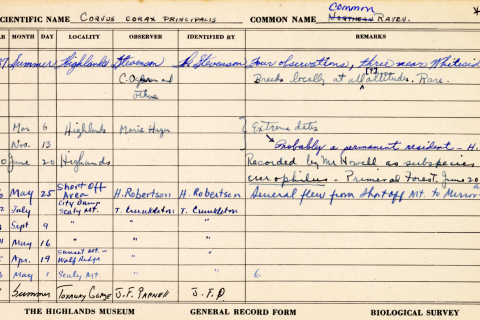 SCIENTIFIC NAME CORVUS CORAX PRINCIPALIS COMMON NAME Common NORTHERN RAVEN. *
YEAR MONTH DAY LOCALITY OBSERVER IDENTIFIED BY REMARKS
7 Summer Highlands Stevenson H. Stevenson Four observations, three near Whiteside
C. and others Breeds locally at all [?] altitudes. Rare.
Mar 6 Highlands Marie Extreme dates
Nov. 13 Probably a permanent resident - H.
June 20 Highlands Recorded by Mr Howell as subspecies
europhilus - Primeval Forest, June 20
6 May 25 Short Off Area H. Robertson H. Robertson Several flew from Short Off Mt. to Mirror
2 July City Dump Scaly Mt. T. Crunkleton T. Crunkleton
Sept 9 " " "
May 16 " " "
Apr. 19 Sunset Mt. - Wolf Ridge " "
May 1 Scaly Mt. " " 6
Summer Toxaway Gorge J.F. Parnell J.F.P
THE HIGHLANDS MUSEUM GENERAL RECORD FORM BIOLOGICAL SURVEY